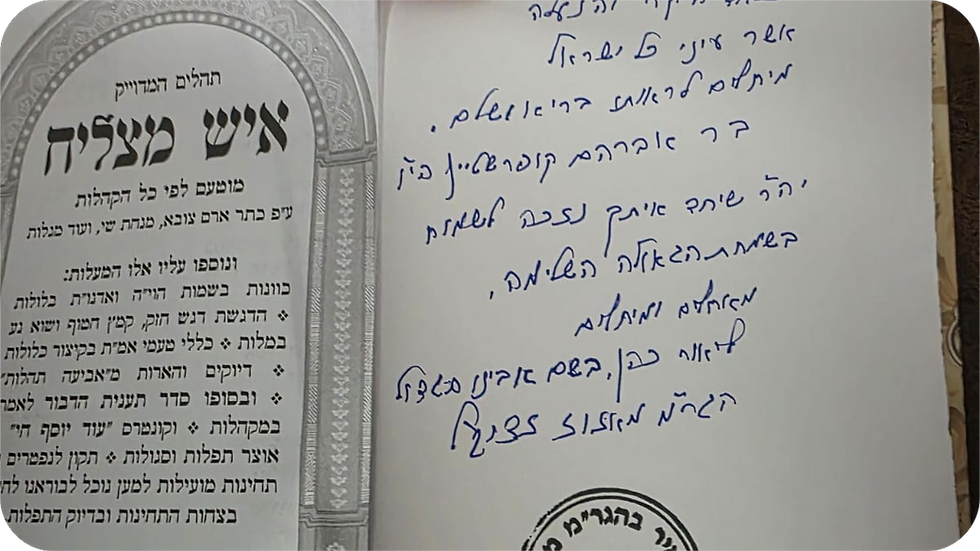 תהלים המדוייק
איש מצליח
מוטעם לפי כל הקהלות
ע״פ כתר ארם צובא, מנחת שי, ועוד מגלות
ונוספו עליו אלו המעלות:
כוונות בשמות הוי״ה ואדנו״ת כלולות
❖ הדגשת דגש חזק, קמץ חטוף ושוא נע
במלות ❖ כללי טעמי אמ״ת בקיצור כלולות
❖ דיוקים והארות מ״אביעה תהלות״
❖ ובסופו סדר תענית הדבור לאמר
במקהלות ❖ וקונטרס ״עוד יוסף חי״
אוצר תפלות וסגולות ❖ תקון לנפטרים
תחינות מועילות למען נוכל לבוראנו
בצחות התחינות ובדיוק התפלות
אשר עיני כל ישראל
מיחלים לראותו בריא ושלם.
ב״ר אברהם קופרשטיין
יה״ר שיחד איתך נזכה לשמוח
בשמחת הגאולה השלימה.
מאחלים ומיחלים
ליאור כהן, בשם אבינו מגדול
הגר״מ מאזוז זצוק״ל
בהגר״מ